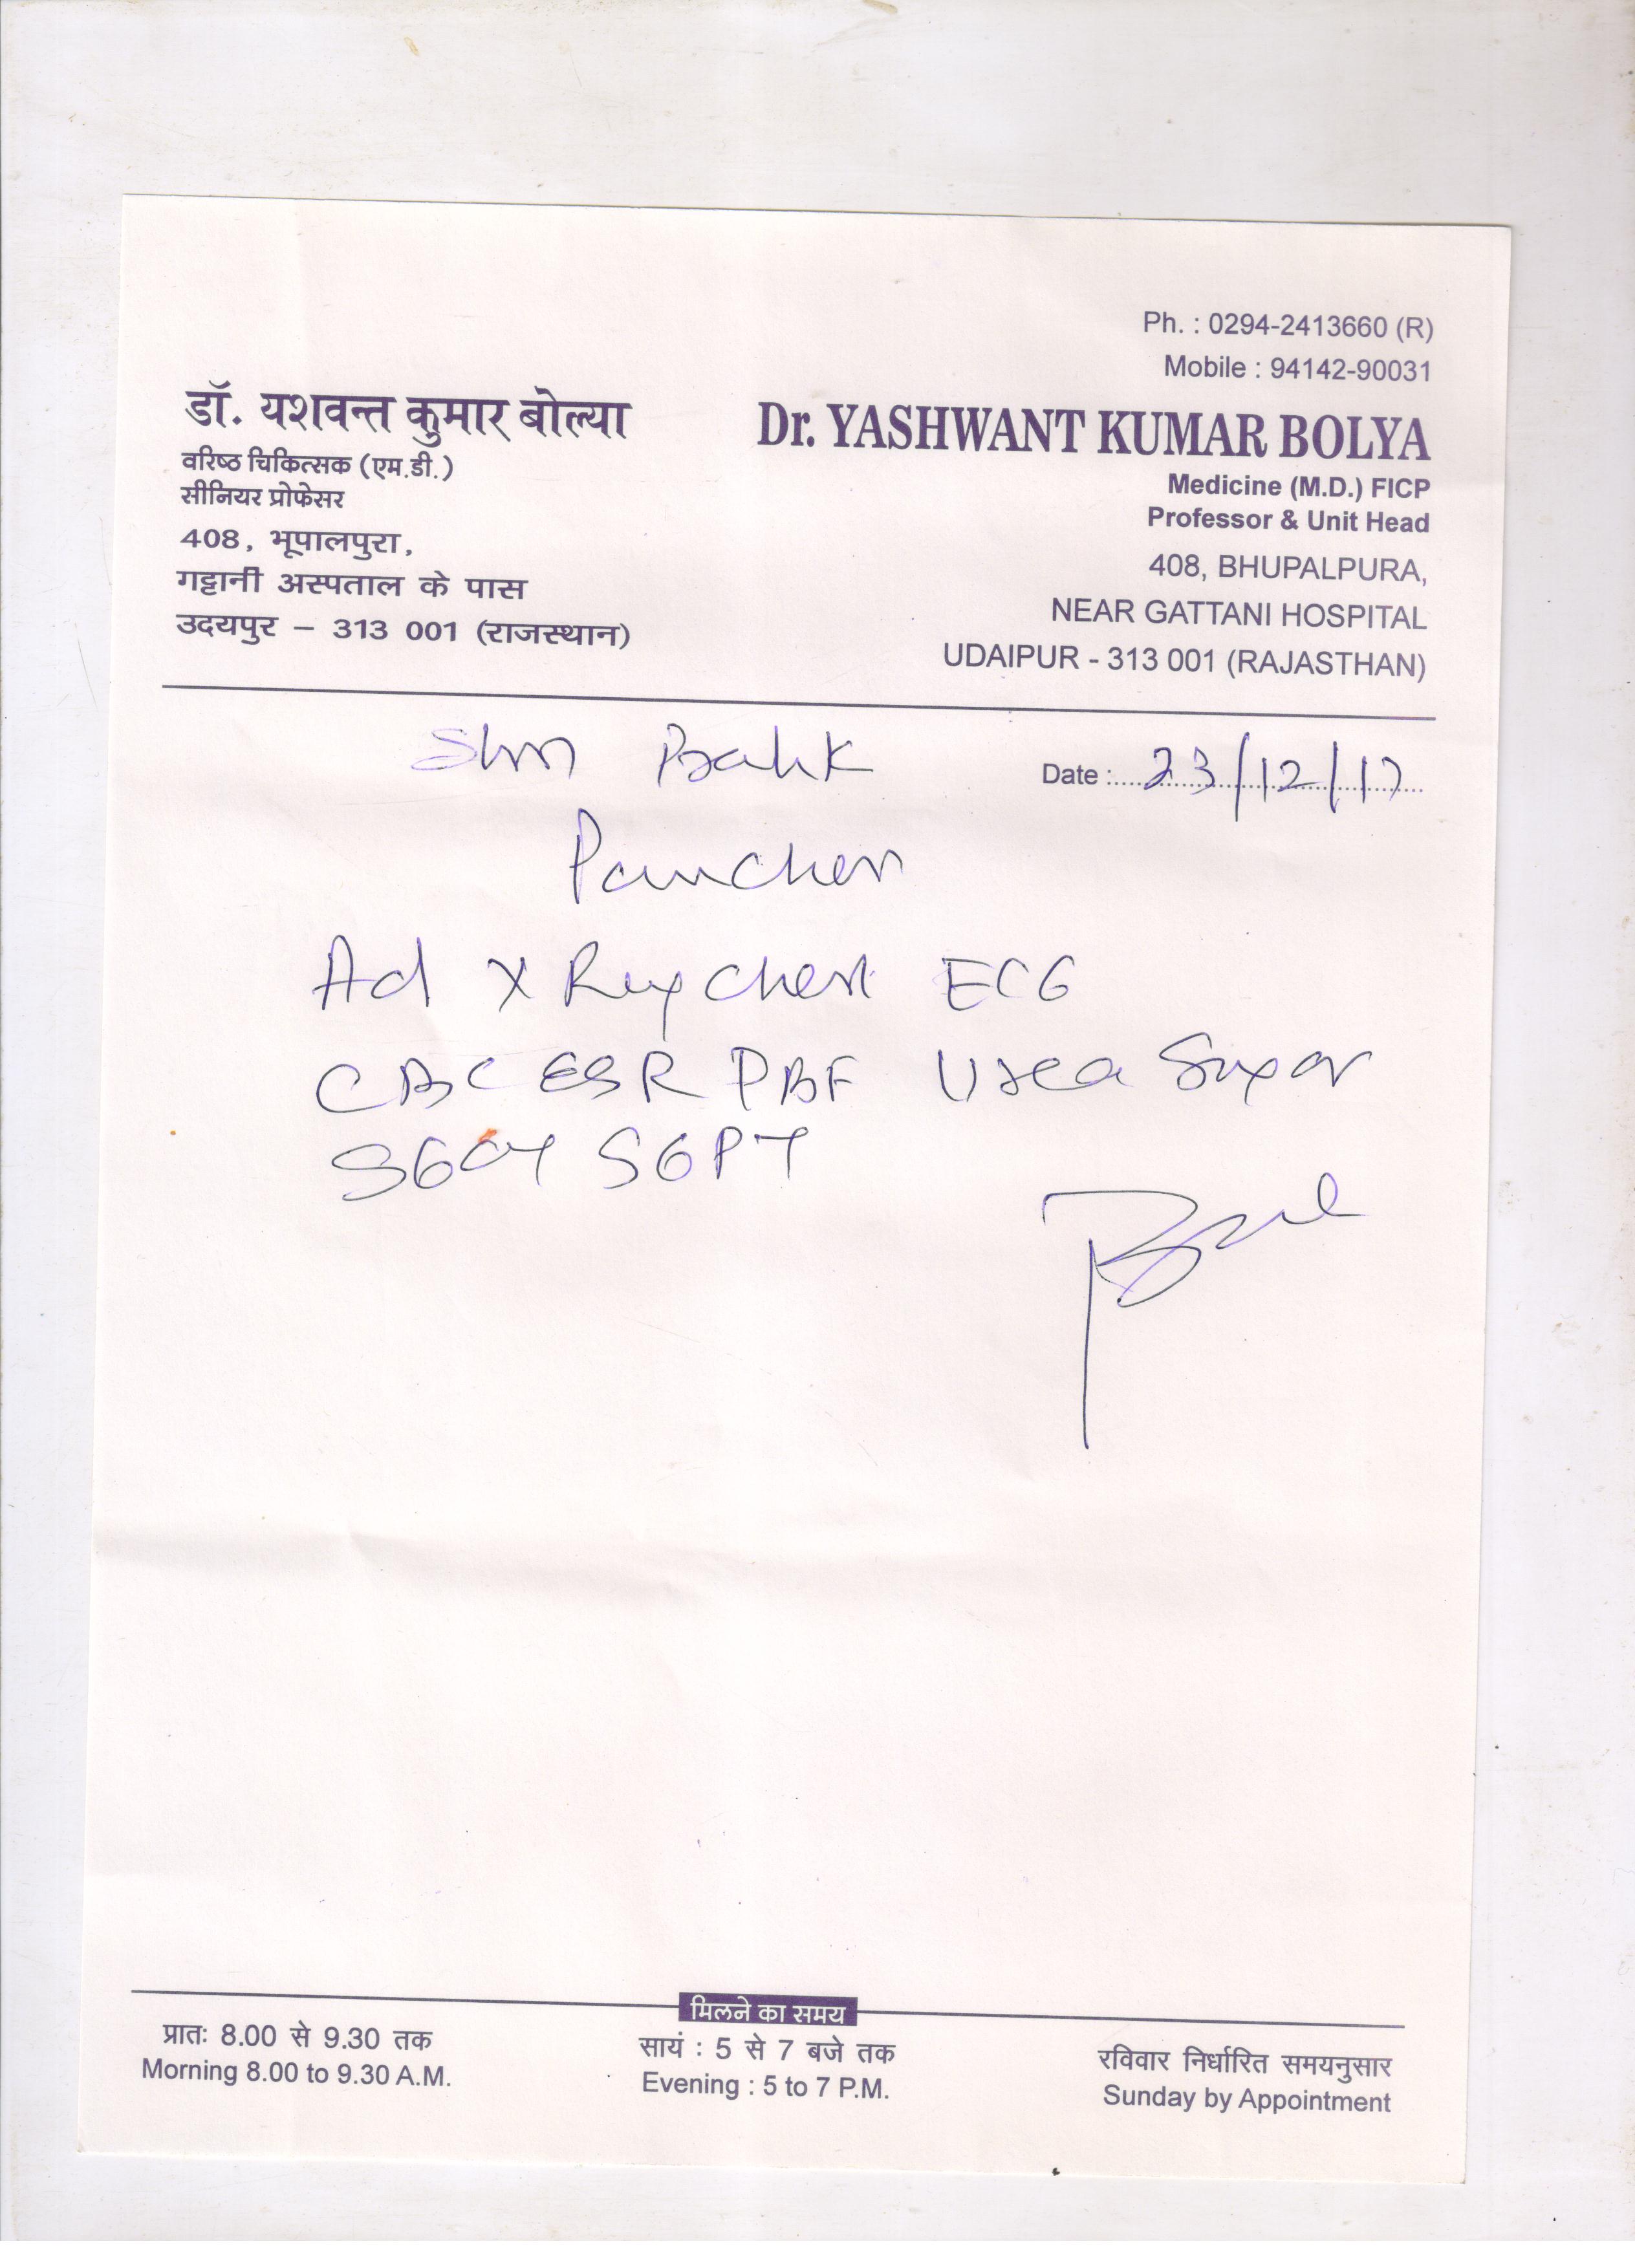 Ph. : 0294-2413660 (R)
Mobile : 94142-90031
डॉ. यशवन्त कुमार बोल्या
वरिष्ठ चिकित्सक (एम.डी.)
सीनियर प्रोफेसर
408, भूपालपुरा,
गट्टानी अस्पताल के पास
उदयपुर – 313 001 (राजस्थान)
Dr. YASHWANT KUMAR BOLYA
Medicine (M.D.) FICP
Professor & Unit Head
408, BHUPALPURA,
NEAR GATTANI HOSPITAL
UDAIPUR - 313 001 (RAJASTHAN)
Date : 23/12/17
Ad X Ray Chest ECG
CBC ESR PBF Urea Sugar
SGOT SGPT
मिलने का समय
प्रातः 8.00 से 9.30 तक
Morning 8.00 to 9.30 A.M.
सायं : 5 से 7 बजे तक
Evening : 5 to 7 P.M.
रविवार निर्धारित समयनुसार
Sunday by Appointment